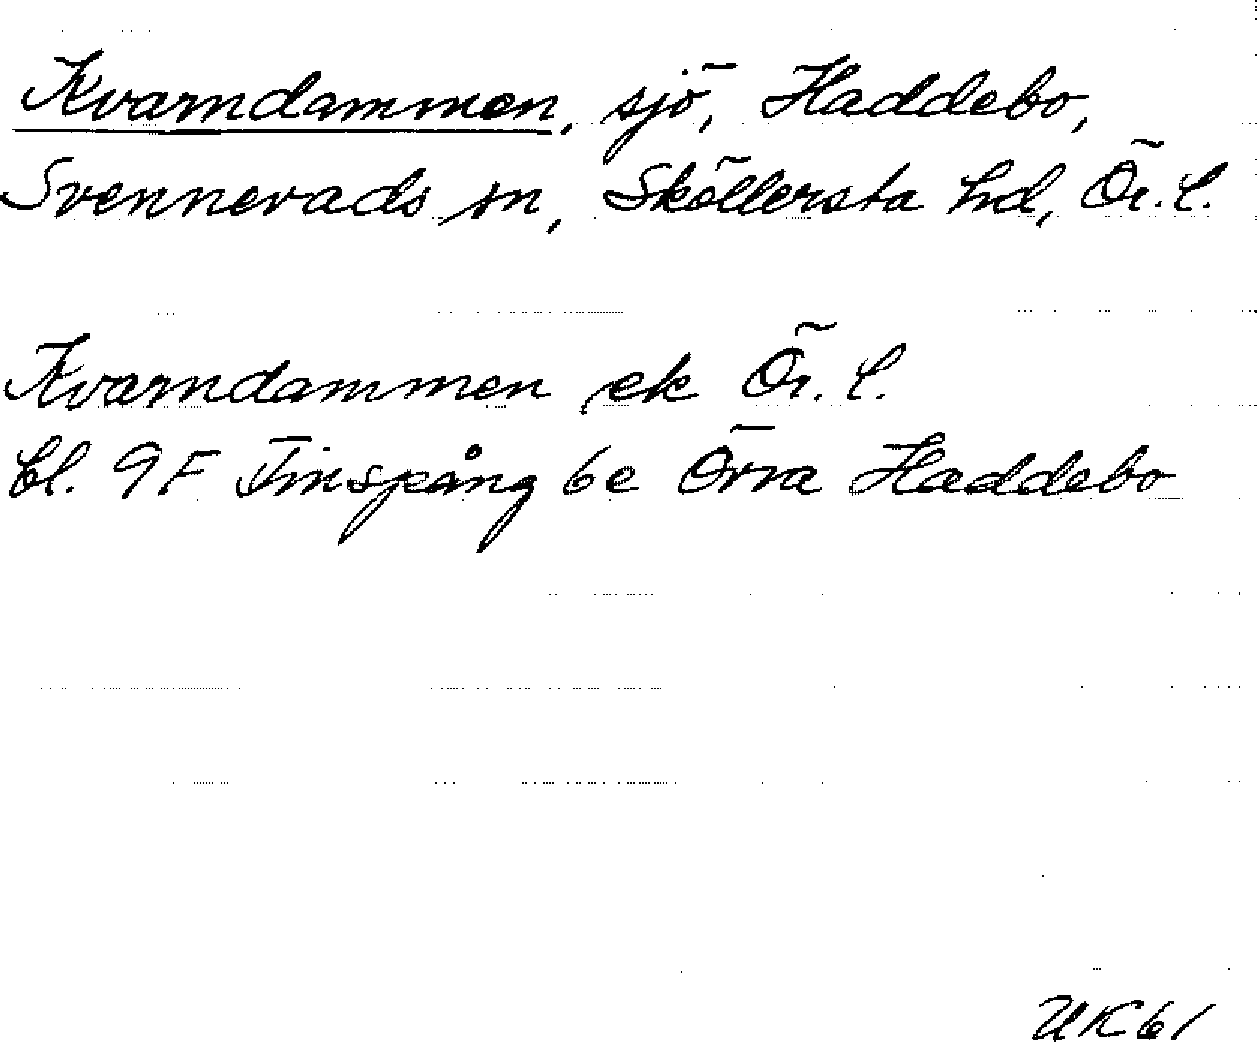 Kvarndammen, sjö, Haddebo,
Svennevads sn, Sköllersta hd, Ör. l.
Kvarndammen ek Ör. l.
bl. 9F Finspång 6e Örra Haddebo
UK61